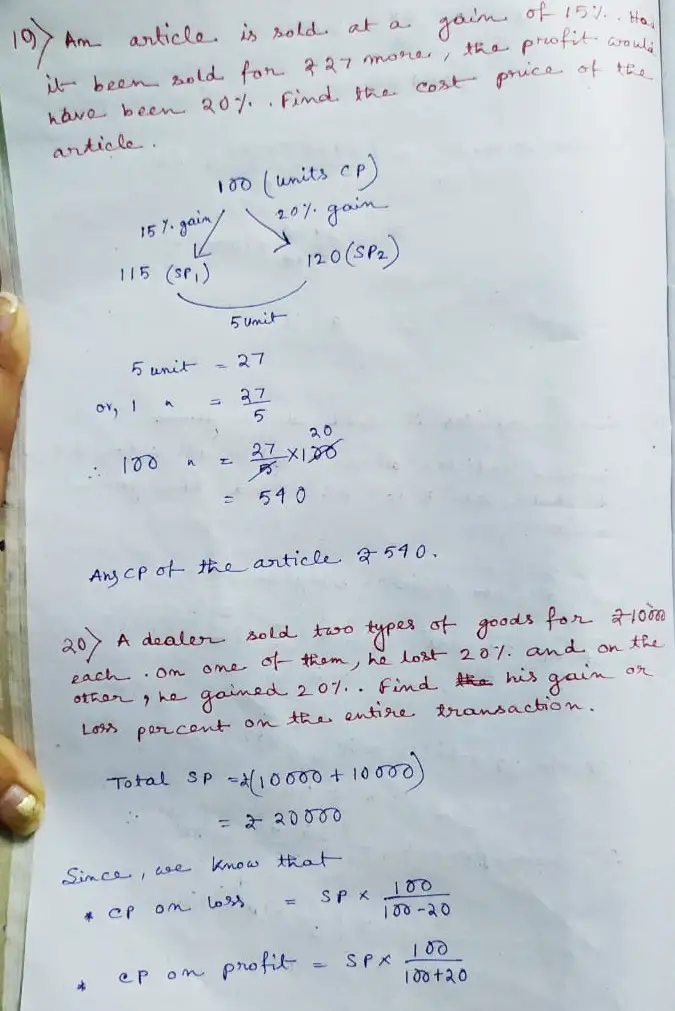 19) An article is sold at a gain of 15%. Had
it been sold for ₹27 more, the profit would
have been 20%. Find the cost price of the
article.
100 (units CP)
15% gain 20% gain
115 (SP1) 120 (SP2)
5 unit
5 unit = 27
or, 1 " = 27/5
∴ 100 " = 27/5 × 100 20
= 540
Ans CP of the article ₹540.
20) A dealer sold two types of goods for ₹10000
each. On one of them, he lost 20% and on the
other, he gained 20%. Find the his gain or
Loss percent on the entire transaction.
Total SP = ₹(10000 + 10000)
∴ = ₹ 20000
Since, we know that
* CP on loss = SP × 100/100-20
* CP on profit = SP × 100/100+20